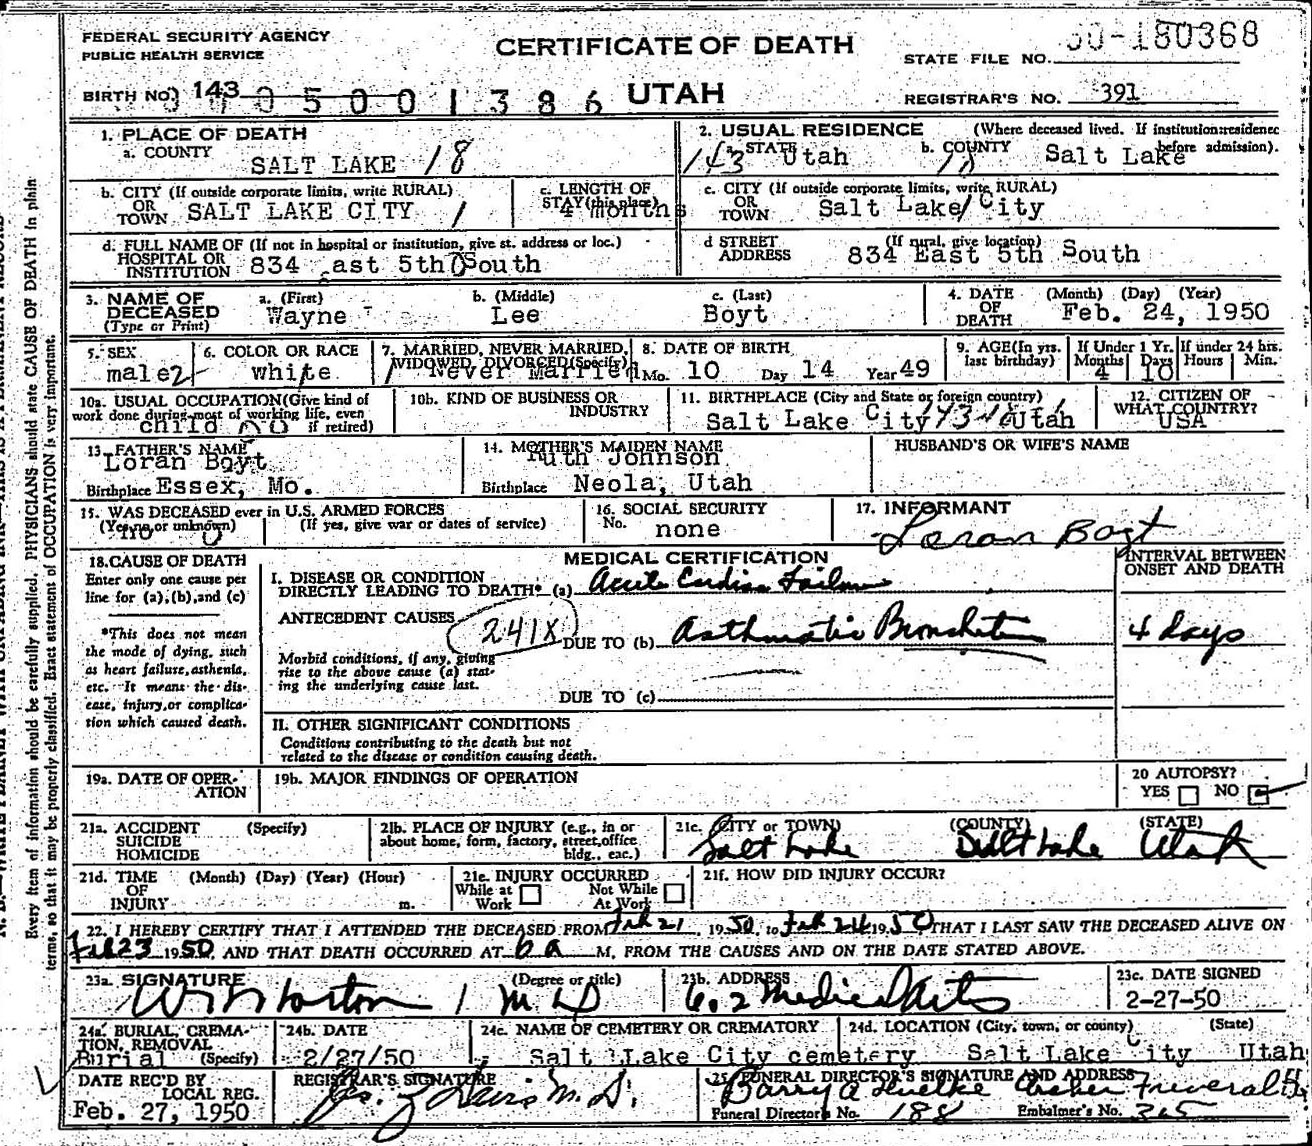 FEDERAL SECURITY AGENCY
PUBLIC HEALTH SERVICE
CERTIFICATE OF DEATH
UTAH
STATE FILE NO. 50-180368
BIRTH NO. 143 05001386
REGISTRAR'S NO. 391
1. PLACE OF DEATH
a. COUNTY SALT LAKE 18
2. USUAL RESIDENCE (Where deceased lived. If institution: residence before admission).
143 a. STATE Utah b. COUNTY 18 Salt Lake
b. CITY (If outside corporate limits, write RURAL) OR TOWN SALT LAKE CITY 1
c. LENGTH OF STAY (this place) 4 months
c. CITY (If outside corporate limits, write RURAL) OR TOWN Salt Lake City
d. FULL NAME OF (If not in hospital or institution, give st. address or loc.) HOSPITAL OR INSTITUTION 834 East 5th South
d STREET ADDRESS (If rural, give location) 834 East 5th South
3. NAME OF DECEASED (Type or Print)
a. (First) Wayne
b. (Middle) Lee
c. (Last) Boyt
4. DATE OF DEATH (Month) (Day) (Year) Feb. 24, 1950
5. SEX male 2
6. COLOR OR RACE white
7. MARRIED, NEVER MARRIED, WIDOWED, DIVORCED (Specify) Never Married
8. DATE OF BIRTH Mo. 10 Day 14 Year 49
9. AGE (In yrs. last birthday)
If Under 1 Yr. Months 4 Days 10
If under 24 hrs. Hours Min.
10a. USUAL OCCUPATION (Give kind of work done during most of working life, even if retired) child
10b. KIND OF BUSINESS OR INDUSTRY
11. BIRTHPLACE (City and State or foreign country) Salt Lake City Utah
12. CITIZEN OF WHAT COUNTRY? USA
13. FATHER'S NAME Loran Boyt
Birthplace Essex, Mo.
14. MOTHER'S MAIDEN NAME Ruth Johnson
Birthplace Neola, Utah
HUSBAND'S OR WIFE'S NAME
15. WAS DECEASED ever in U.S. ARMED FORCES (Yes, no or unknown) no 0 (If yes, give war or dates of service)
16. SOCIAL SECURITY No. none
17. INFORMANT Loran Boyt
18. CAUSE OF DEATH
Enter only one cause per line for (a), (b), and (c)
*This does not mean the mode of dying, such as heart failure, asthenia, etc. It means the disease, injury, or complication which caused death.
MEDICAL CERTIFICATION
INTERVAL BETWEEN ONSET AND DEATH
I. DISEASE OR CONDITION DIRECTLY LEADING TO DEATH* (a) Acute Cardiac Failure
ANTECEDENT CAUSES 241X DUE TO (b) Asthmatic Bronchitis 4 days
Morbid conditions, if any, giving rise to the above cause (a) stating the underlying cause last.
DUE TO (c)
II. OTHER SIGNIFICANT CONDITIONS
Conditions contributing to the death but not related to the disease or condition causing death.
19a. DATE OF OPERATION
19b. MAJOR FINDINGS OF OPERATION
20 AUTOPSY? YES NO
21a. ACCIDENT SUICIDE HOMICIDE (Specify)
21b. PLACE OF INJURY (e.g., in or about home, form, factory, street, office bldg., eac.)
21c. (CITY or TOWN) (COUNTY) (STATE)
Salt Lake Salt Lake Utah
21d. TIME OF INJURY (Month) (Day) (Year) (Hour) m.
21e. INJURY OCCURRED While at Work Not While At Work
21f. HOW DID INJURY OCCUR?
22. I HEREBY CERTIFY THAT I ATTENDED THE DECEASED FROM Feb 21 1950, to Feb 24 1950 THAT I LAST SAW THE DECEASED ALIVE ON
Feb 23 1950, AND THAT DEATH OCCURRED AT 6 a M, FROM THE CAUSES AND ON THE DATE STATED ABOVE.
23a. SIGNATURE (Degree or title) M D
23b. ADDRESS Medical Arts
23c. DATE SIGNED 2-27-50
24a. BURIAL, CREMATION, REMOVAL (Specify) Burial
24b. DATE 2/27/50
24c. NAME OF CEMETERY OR CREMATORY Salt Lake City cemetery
24d. LOCATION (City, town, or county) (State) Salt Lake City Utah
DATE REC'D BY LOCAL REG. Feb. 27, 1950
REGISTRAR'S SIGNATURE M. D.
25. FUNERAL DIRECTOR'S SIGNATURE AND ADDRESS
Funeral Director's No. 188 Embalmer's No. 365
Every item of information should be carefully supplied. PHYSICIANS should state CAUSE OF DEATH in plain
terms, so that it may be properly classified. Exact statement of OCCUPATION is very important.